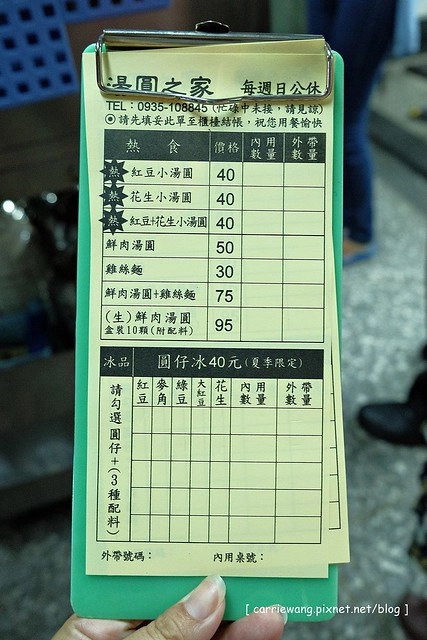 湯圓之家 每週日公休
TEL：0935-108845 (忙碌中未接，請見諒)
◎請先填妥此單至櫃檯結帳，祝您用餐愉快
熱食 價格 內用數量 外帶數量
熱 紅豆小湯圓 40
熱 花生小湯圓 40
熱 紅豆+花生小湯圓 40
鮮肉湯圓 50
雞絲麵 30
鮮肉湯圓+雞絲麵 75
(生)鮮肉湯圓 95
盒裝10顆(附配料)
冰品 圓仔冰40元(夏季限定)
請勾選圓仔+(3種配料) 紅豆 麥角 綠豆 大紅豆 花生 內用數量 外帶數量
外帶號碼： 內用桌號：
[ carriewang.pixnet.net/blog ]